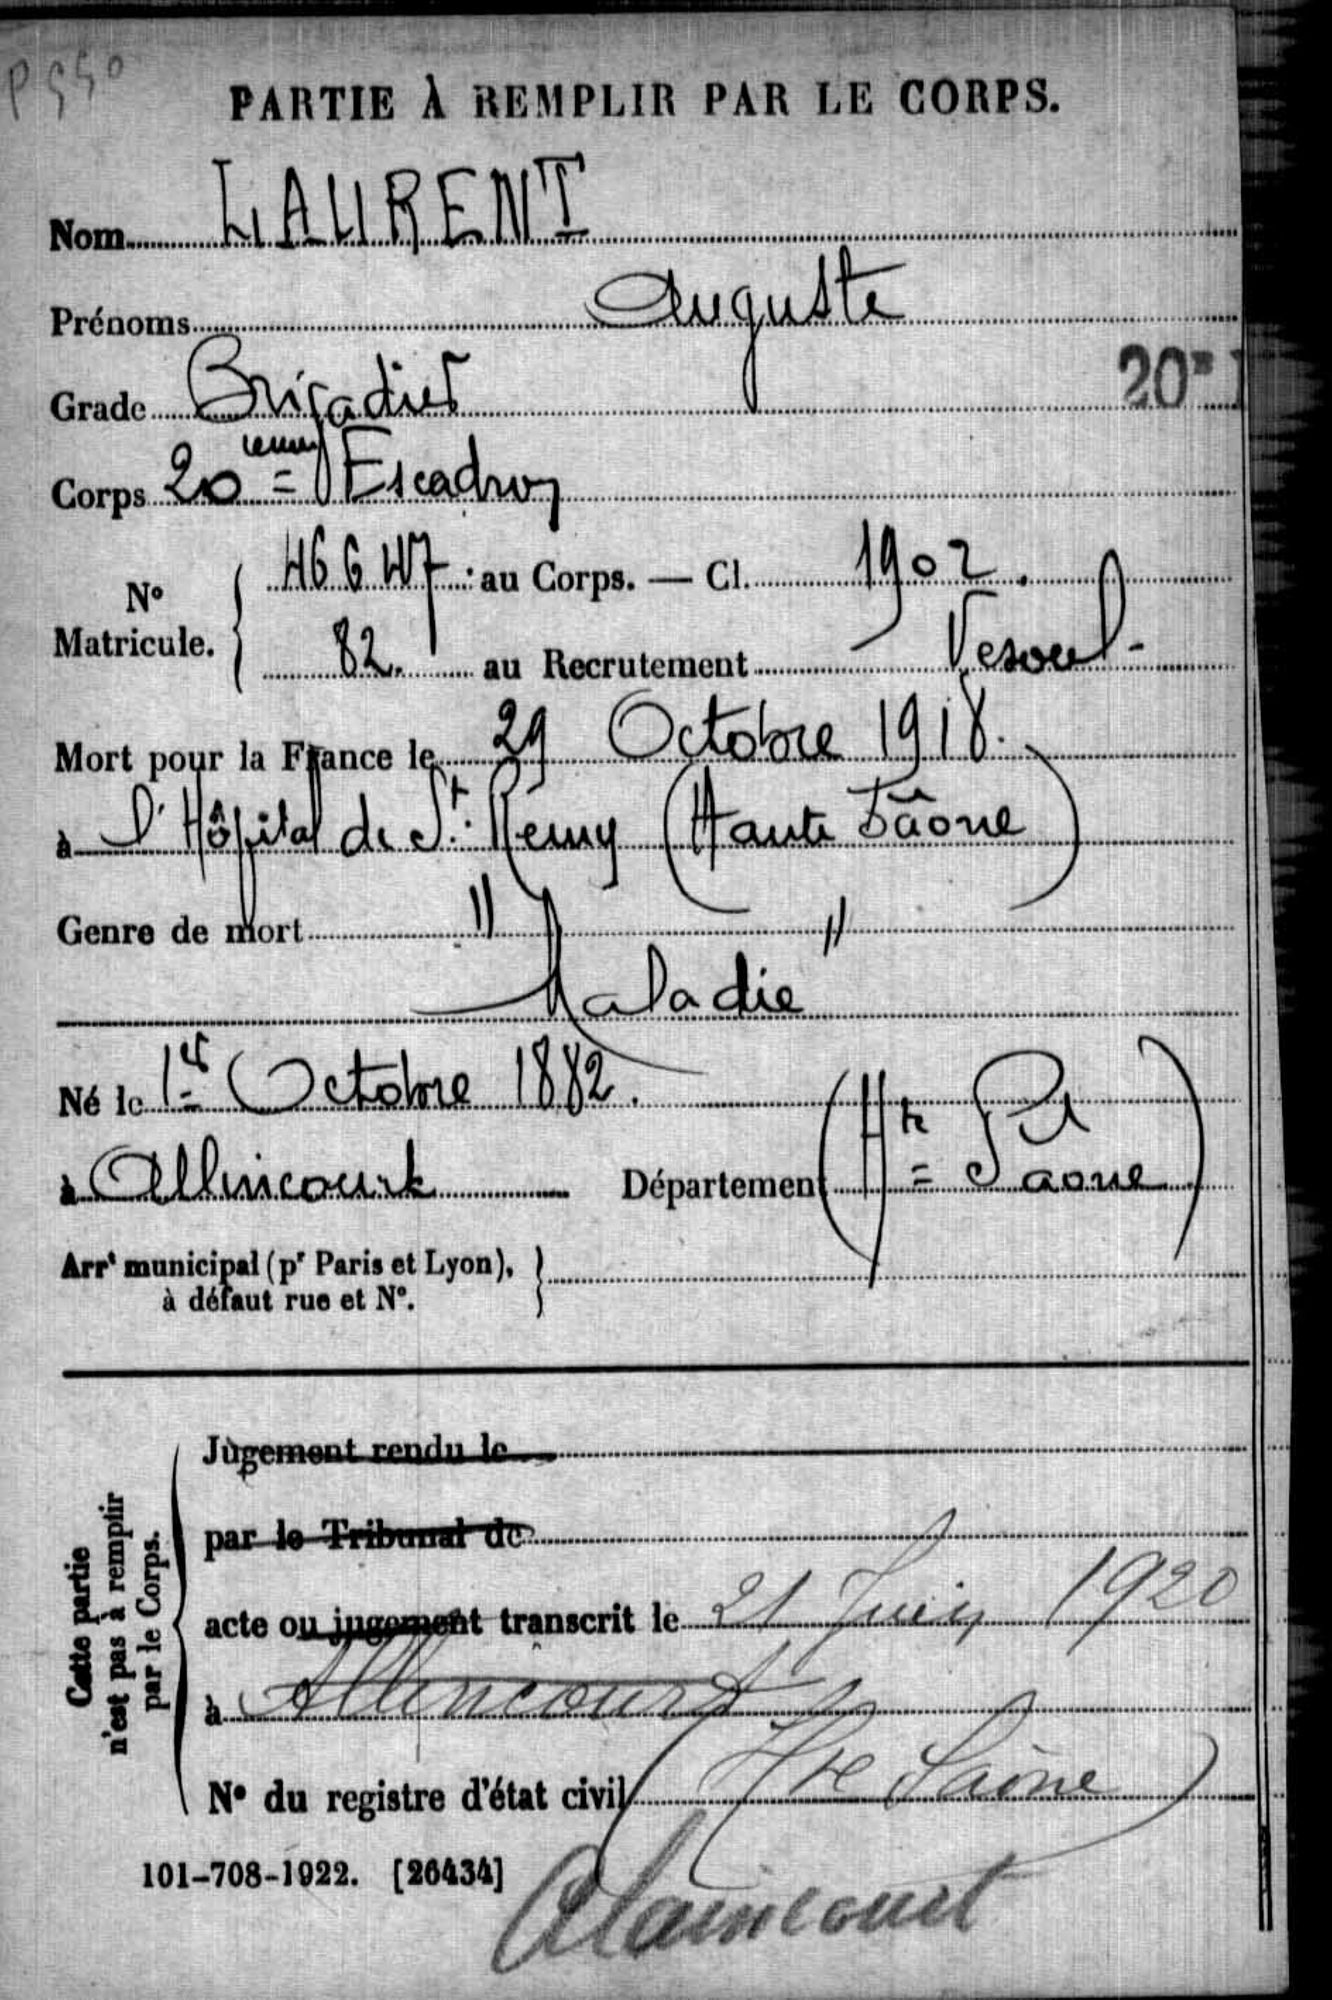 P 550
PARTIE À REMPLIR PAR LE CORPS.
Nom LAURENT
Prénoms Auguste
Grade Brigadier
20e
Corps 20 = Escadron
46647 au Corps. — Cl. 1902.
N°
Matricule.
82. au Recrutement Vesoul
Mort pour la France le 29 Octobre 1918.
à l'Hôpital de St. Rémy (Haute Saône)
Genre de mort " "
Maladie
Né le 1er Octobre 1882.
à Allincourt Département (Hte Saone)
Arrt municipal (pr Paris et Lyon),
à défaut rue et N°.
Cette partie
n'est pas à remplir
par le Corps.
Jugement rendu le
par le Tribunal de
acte ou jugement transcrit le 21 Juin 1920
à Allincourt
N° du registre d'état civil (Hte Saône)
101-708-1922. [26434]
Alaincourt